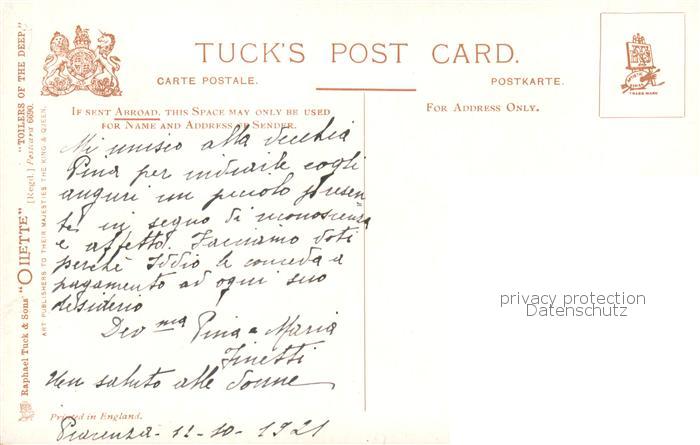 TUCK'S POST CARD.
CARTE POSTALE.
POSTKARTE.
IF SENT ABROAD, THIS SPACE MAY ONLY BE USED
FOR NAME AND ADDRESS OF SENDER.
FOR ADDRESS ONLY.
TRADE MARK
Raphael Tuck & Sons' "OILETTE" [Regd.] Postcard 6690. "TOILERS OF THE DEEP."
ART PUBLISHERS TO THEIR MAJESTIES THE KING & QUEEN.
Mi unisco alla vecchia
Pina per inviarle cogli
auguri un piccolo presen
te in segno di riconoscenza
e affetto. Facciamo voti
perchè Iddio le conceda a
pagamento ad ogni suo
desiderio
Dev ma Pina e Maria
Finetti
Un saluto alle donne
Printed in England.
Piacenza 11-10-1921
privacy protection
Datenschutz